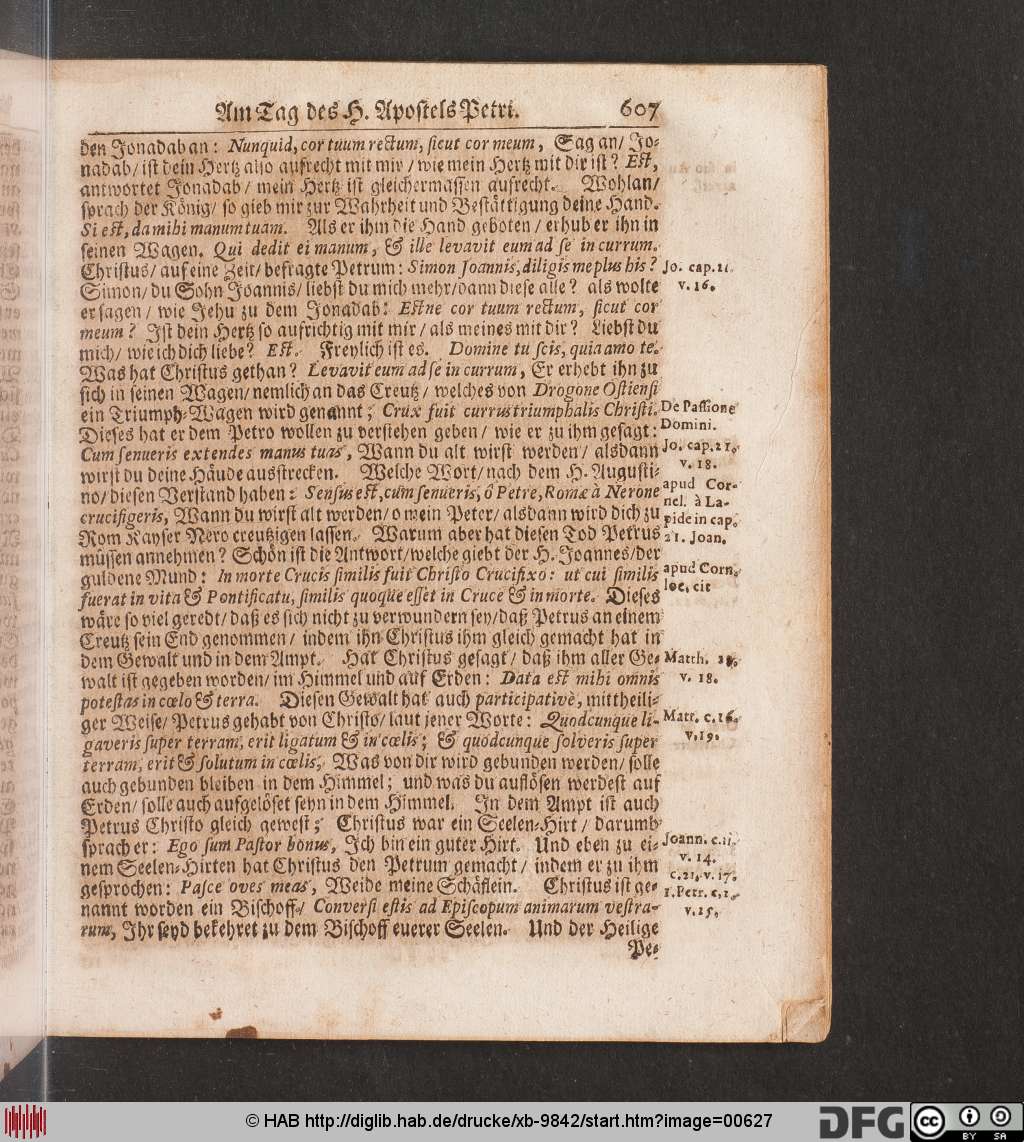 Am Tag des H. Apostels Petri. 607
den Jonadab an: Nunquid, cor tuum rectum, sicut cor meum, Sag an/ Jo-
nadab/ ist dein Hertz also aufrecht mit mir/ wie mein Hertz mit dir ist? Est,
antwortet Jonadab/ mein Hertz ist gleichermassen aufrecht. Wohlan/
sprach der König/ so gieb mir zur Wahrheit und Bestättigung deine Hand.
Si est, da mihi manum tuam. Als er ihm die Hand geboten/ erhub er ihn in
seinen Wagen. Qui dedit ei manum, & ille levavit eum ad se in currum.
Christus/ auf eine Zeit/ befragte Petrum: Simon Joannis, diligis me plus his?
Jo. cap. 21.
Simon/ du Sohn Joannis/ liebst du mich mehr/ dann diese alle? als wolte
v. 16.
er sagen/ wie Jehu zu dem Jonadab: Estne cor tuum rectum, sicut cor
meum? Ist dein Hertz so aufrichtig mit mir/ als meines mit dir? Liebst du
mich/ wie ich dich liebe? Est. Freylich ist es. Domine tu scis, quia amo te.
Was hat Christus gethan? Levavit eum ad se in currum, Er erhebt ihn zu
sich in seinen Wagen/ nemlich an das Creutz/ welches von Drogone Ostiensi
ein Triumph-Wagen wird genannt; Crux fuit currus triumphalis Christi.
De Passione
Domini.
Dieses hat er dem Petro wollen zu verstehen geben/ wie er zu ihm gesagt:
Cum senueris extendes manus tuas, Wann du alt wirst werden/ alsdann
Jo. cap. 21.
v. 18.
wirst du deine Häude ausstrecken. Welche Wort/ nach dem H. Augusti-
no/ diesen Verstand haben: Sensus est, cùm senueris, ô Petre, Romæ à Nerone
apud Cor-
nel. à La-
crucifigeris, Wann du wirst alt werden/ o mein Peter/ alsdann wird dich zu
pide in cap.
Rom Kayser Nero creutzigen lassen. Warum aber hat diesen Tod Petrus
21. Joan.
müssen annehmen? Schön ist die Antwort/ welche giebt der H. Joannes/ der
guldene Mund: In morte Crucis similis fuit Christo Crucifixo: ut cui similis
apud Corn.
loc. cit
fuerat in vita & Pontificatu, similis quoque esset in Cruce & in morte. Dieses
wäre so viel geredt/ daß es sich nicht zu verwundern sey/ daß Petrus an einem
Creutz sein End genommen/ indem ihn Christus ihm gleich gemacht hat in
dem Gewalt und in dem Ampt. Hat Christus gesagt/ daß ihm aller Ge-
Matth. 28.
walt ist gegeben worden/ im Himmel und auf Erden: Data est mihi omnis
v. 18.
potestas in cœlo & terra. Diesen Gewalt hat auch participativè, mittheili-
ger Weise/ Petrus gehabt von Christo/ laut jener Worte: Quodcunque li-
Matt. c. 16.
v. 19.
gaveris super terram, erit ligatum & in cœlis; & quodcunque solveris super
terram, erit & solutum in cœlis, Was von dir wird gebunden werden/ solle
auch gebunden bleiben in dem Himmel; und was du auflösen werdest auf
Erden/ solle auch aufgelöset seyn in dem Himmel. In dem Ampt ist auch
Petrus Christo gleich gewest; Christus war ein Seelen-Hirt/ darumb
sprach er: Ego sum Pastor bonus, Ich bin ein guter Hirt. Und eben zu ei-
Joann. c. 11.
v. 14.
nem Seelen-Hirten hat Christus den Petrum gemacht/ indem er zu ihm
c. 21. v. 17.
gesprochen: Pasce oves meas, Weide meine Schäflein. Christus ist ge-
1. Petr. c. 1.
nannt worden ein Bischoff/ Conversi estis ad Episcopum animarum vestra-
v. 15.
rum, Ihr seyd bekehret zu dem Bischoff euerer Seelen. Und der Heilige
Pe-
© HAB http://diglib.hab.de/drucke/xb-9842/start.htm?image=00627
DFG
cc
BY SA